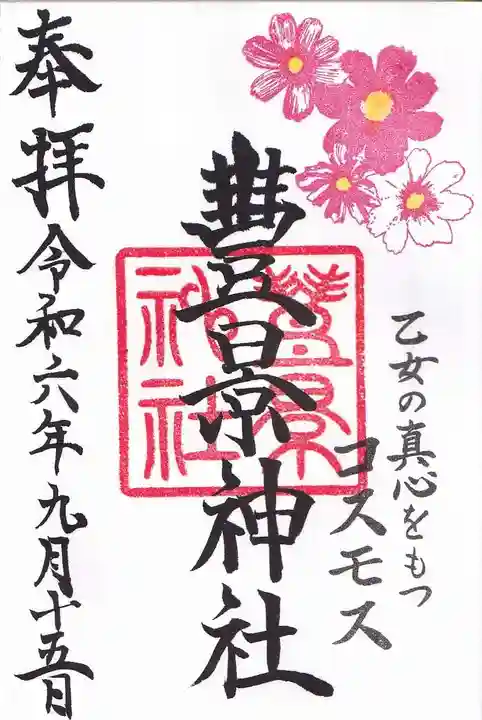 乙女の真心をもつ
コスモス
豊景神社
豊景神社
奉拝
令和六年九月十五日